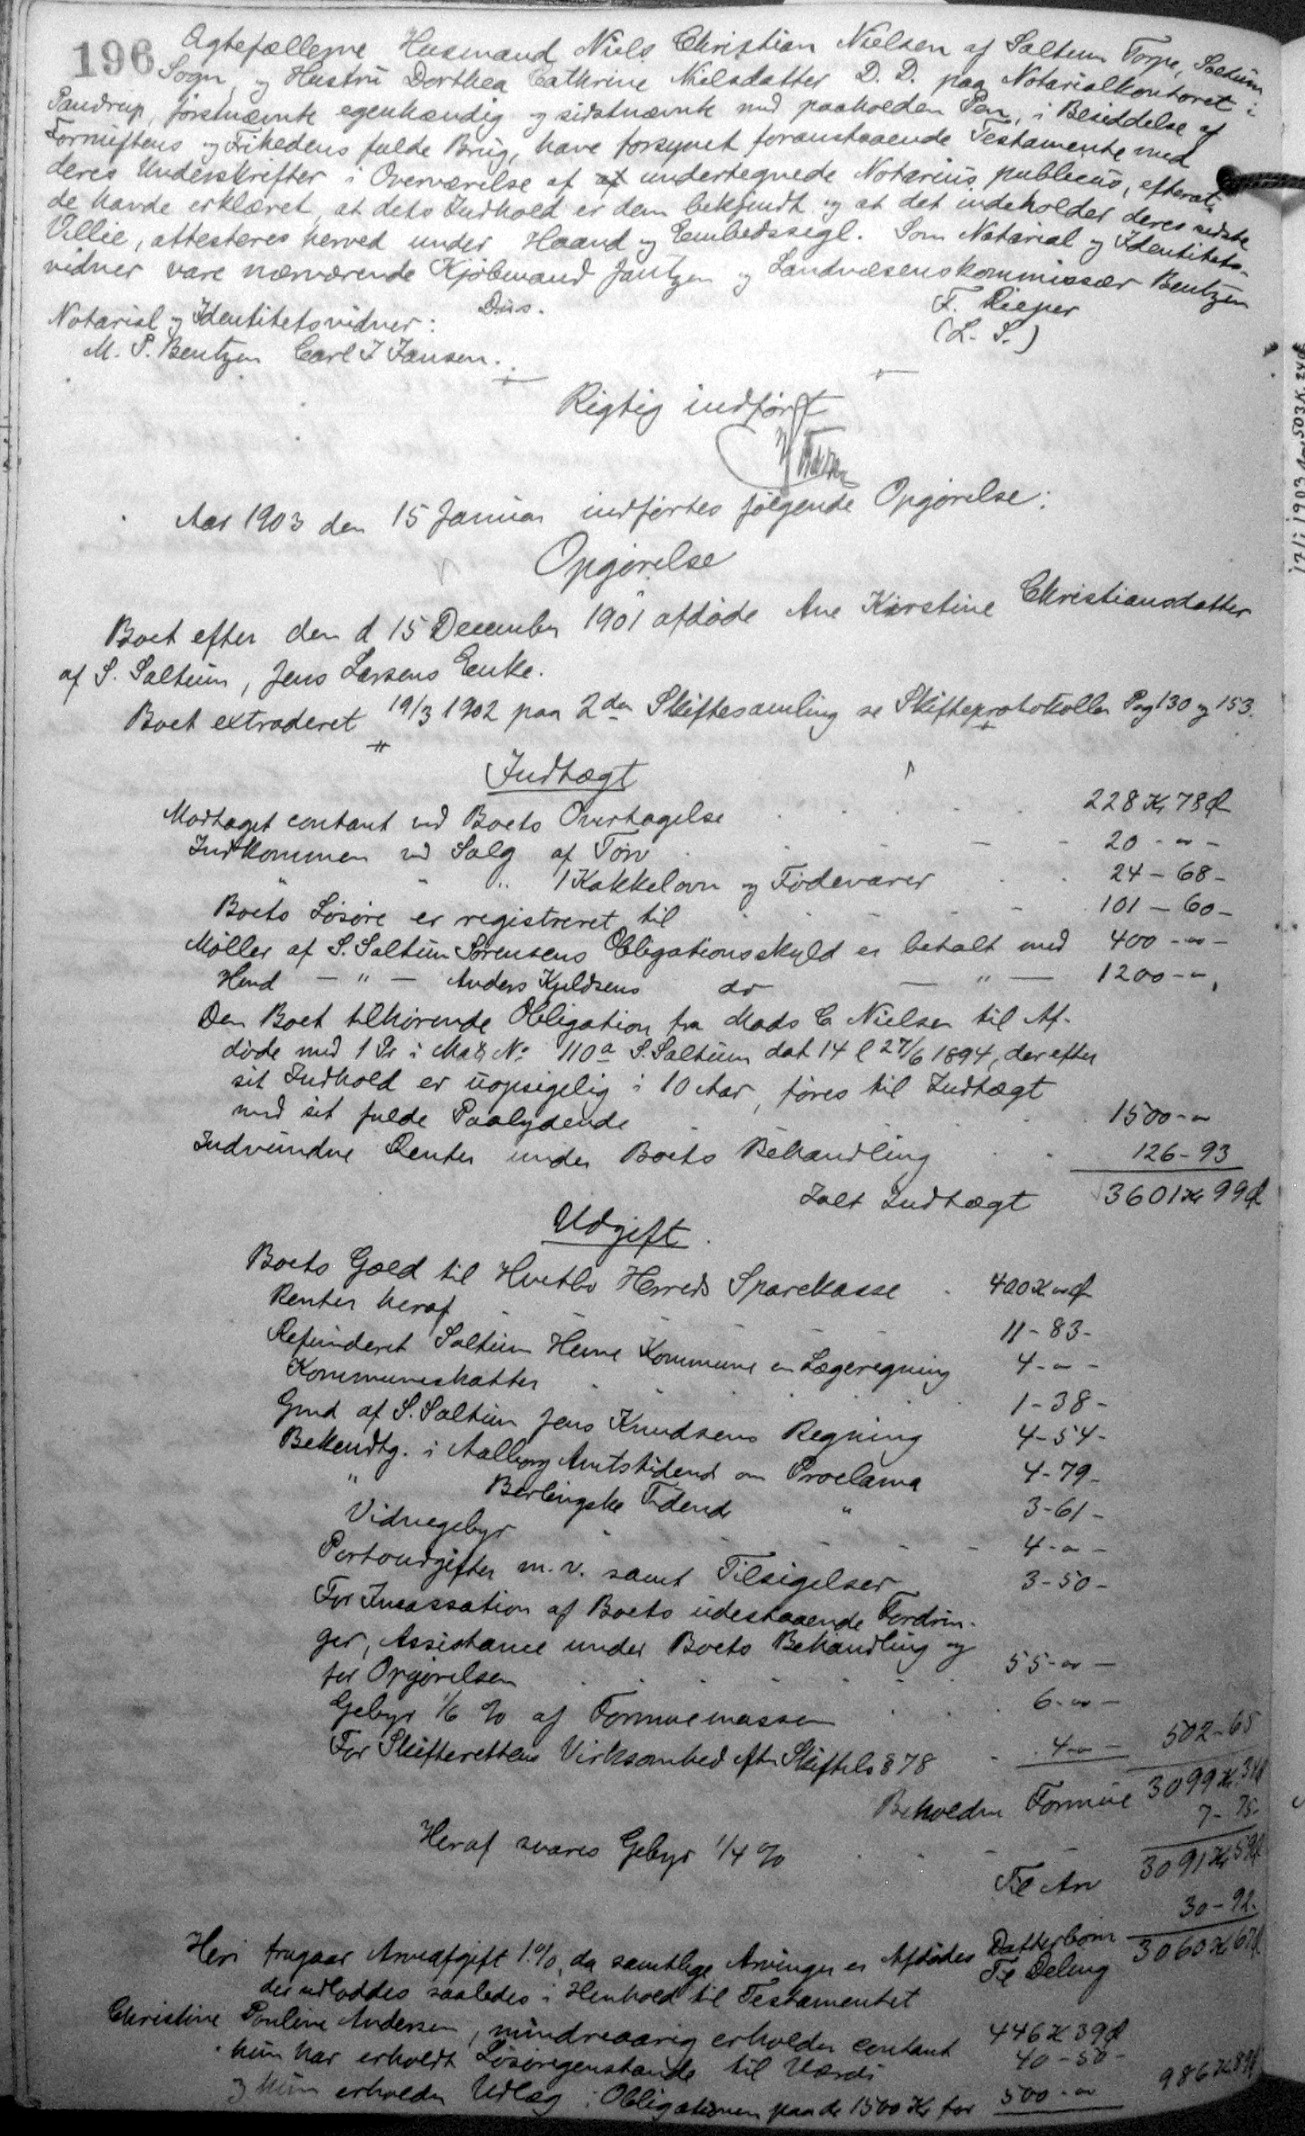 196
Ægtefællerne Husmand Niels Christian Nielsen af Saltum Torpe, Saltum
Sogn, og Hustru Dorthea Cathrine Nielsdatter D. D. paa Notarialkontoret i
Pandrup, førstnævnte egenhændig og sidstnævnte med paaholden Pen, i Besiddelse af
Fornuftens og Frihedens fulde Brug, have forsynet foranstaaende Testamente med
deres Underskrifter i Overværelse af af undertegnede Notarius publicus, efterat
de havde erklæret, at dets Indhold er dem bekjendt og at det indeholder deres sidste
Villie, attesteres herved under Haand og Embedssegl. Som Notarial og Identitets-
vidner vare nærværende Kjøbmand Jantzen og Landvæsenskommissær Bentzen
Dus.
F. Rieper
(L. S.)
Notarial og Identitetsvidner:
M. P. Bentzen Carl J Jansen.
Rigtig indført
Aar 1903 den 15 Januar indførtes følgende Opgjørelse:
Opgjørelse
Boet efter den d 15 December 1901 afdøde Ane Kirstine Christiansdatter
af S. Saltum, Jens Larsens Enke.
Boet extraderet 19/3 1902 paa 2den Skiftesamling se Skifteprotokollen Pag 130 og 153.
Indtægt
Modtaget contant ved Boets Overtagelse 228 Kr 78 Ø
Indkommen ved Salg af Tørv 20 - " -
" " " 1 Kakkelovn og Fødevarer 24 - 68 -
Boets Løsøre er registreret til 101 - 60 -
Møller af S. Saltum Sørensens Obligationsskyld er betalt med 400 - " -
Hmd - " - Anders Kjeldsens do - " - 1200 - "
Den Boet tilhørende Obligation fra Mads C Nielsen til Af-
døde med 1 Pr i Matr No 110a S. Saltum dat 14 l 27/6 1894, der efter
sit Indhold er uopsigelig i 10 Aar, føres til Indtægt
med sit fulde Paalydende 1500 - "
Indvundne Renter under Boets Behandling 126 - 93
Ialt Indtægt 3601 Kr 99 Ø
Udgift.
Boets Gæld til Hvetbo Herreds Sparekasse 400 Kr " Ø
Renter heraf 11 - 83 -
Refunderet Saltum Hune Kommune en Lægeregning 4 - " -
Kommuneskatter 1 - 38 -
Gmd af S. Saltum Jens Knudsens Regning 4 - 54 -
Bekendtg. i Aalborg Amtstidend om Proclama 4 - 79 -
" Berlingske Tidend " 3 - 61 -
Vidnegebyr 4 - " -
Portoudgifter m. v. samt Tilsigelser 3 - 50 -
For Incassation af Boets udestaaende Fordrin-
ger, Assistance under Boets Behandling og
for Opgjørelsen 55 - " -
Gebyr 1/6 % af Formuemassen 6 - " -
For Skifterettens Virksomhed efter Skiftels § 78 4 - " - 502 - 65
Beholden Formue 3099 Kr. 34 Ø
Heraf svares Gebyr 1/4 % 7 - 75 -
Til Arv 3091 Kr 59 Ø
30 - 92 -
Heri fragaar Arveafgift 1 %, da samtlige Arvinger er Afdødes Datterbørn
Til Deling 3060 Kr 67 Ø
der udloddes saaledes i Henhold til Testamentet
Christine Pouline Andersen, mindreaarig erholder contant 446 Kr 39 Ø
hun har erholdt Løsøregenstande til Værdi 40 - 50 -
og hun erholder Udlæg i Obligationen paa de 1500 Kr for 500 - " 986 Kr 89 Ø